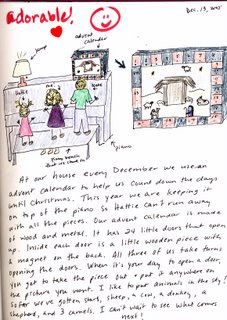 adorable!
Dec. 13, 2005
advent
calendar
lamp
Hattie
me
Nate
piano
piano bench
that we stand on
At our house every December we use an
advent calendar to help us count down the days
until Christmas. This year we are keeping it
on top of the piano so Hattie can't run away
with all the pieces. Our advent calendar is made
of wood and metal. It has 24 little doors that open
up. Inside each door is a little wooden piece with
a magnet on the back. All three of us take turns
opening the doors. When it's your day to open a door,
you get to take the piece out + put it anywhere on
the picture you want. I like to put animals in the sky!
So far we've gotten stars, sheep, a cow, a donkey, a
shepherd, and 3 camels. I can't wait to see what comes
next!